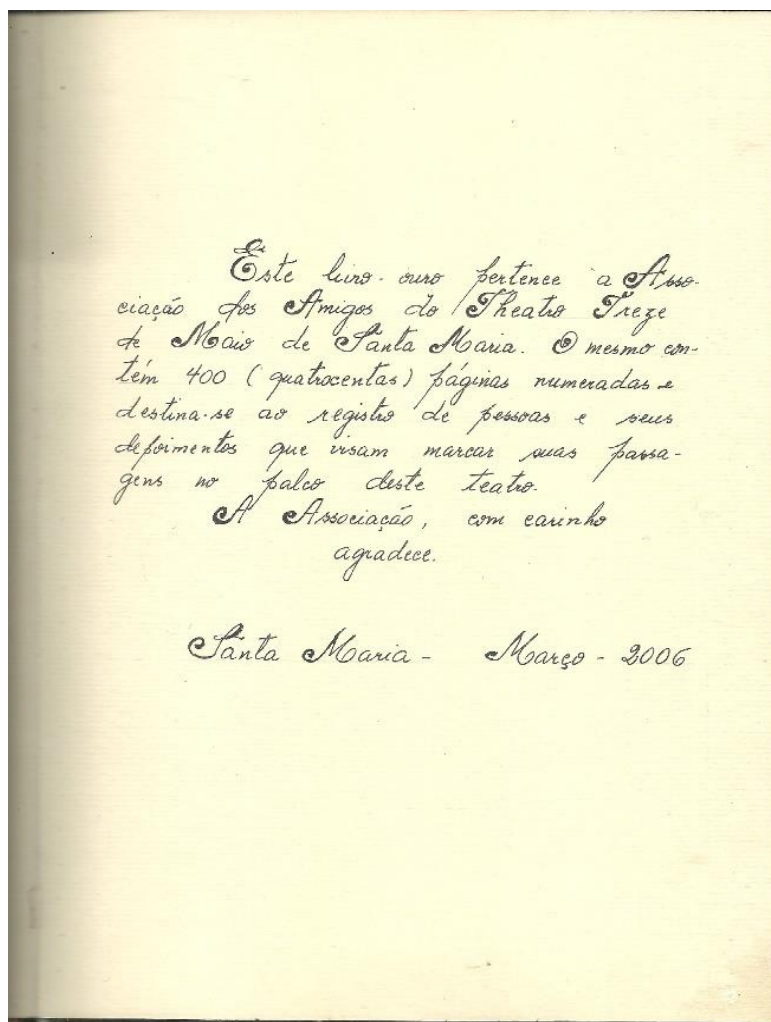 Este livro-ouro pertence a Asso-
ciação dos Amigos do Theatro Treze
de Maio de Santa Maria. O mesmo con-
tém 400 (quatrocentas) páginas numeradas e
destina-se ao registro de pessoas e seus
depoimentos que visam marcar suas passa-
gens no palco deste teatro.
A Associação, com carinho
agradece.
Santa Maria - Março - 2006